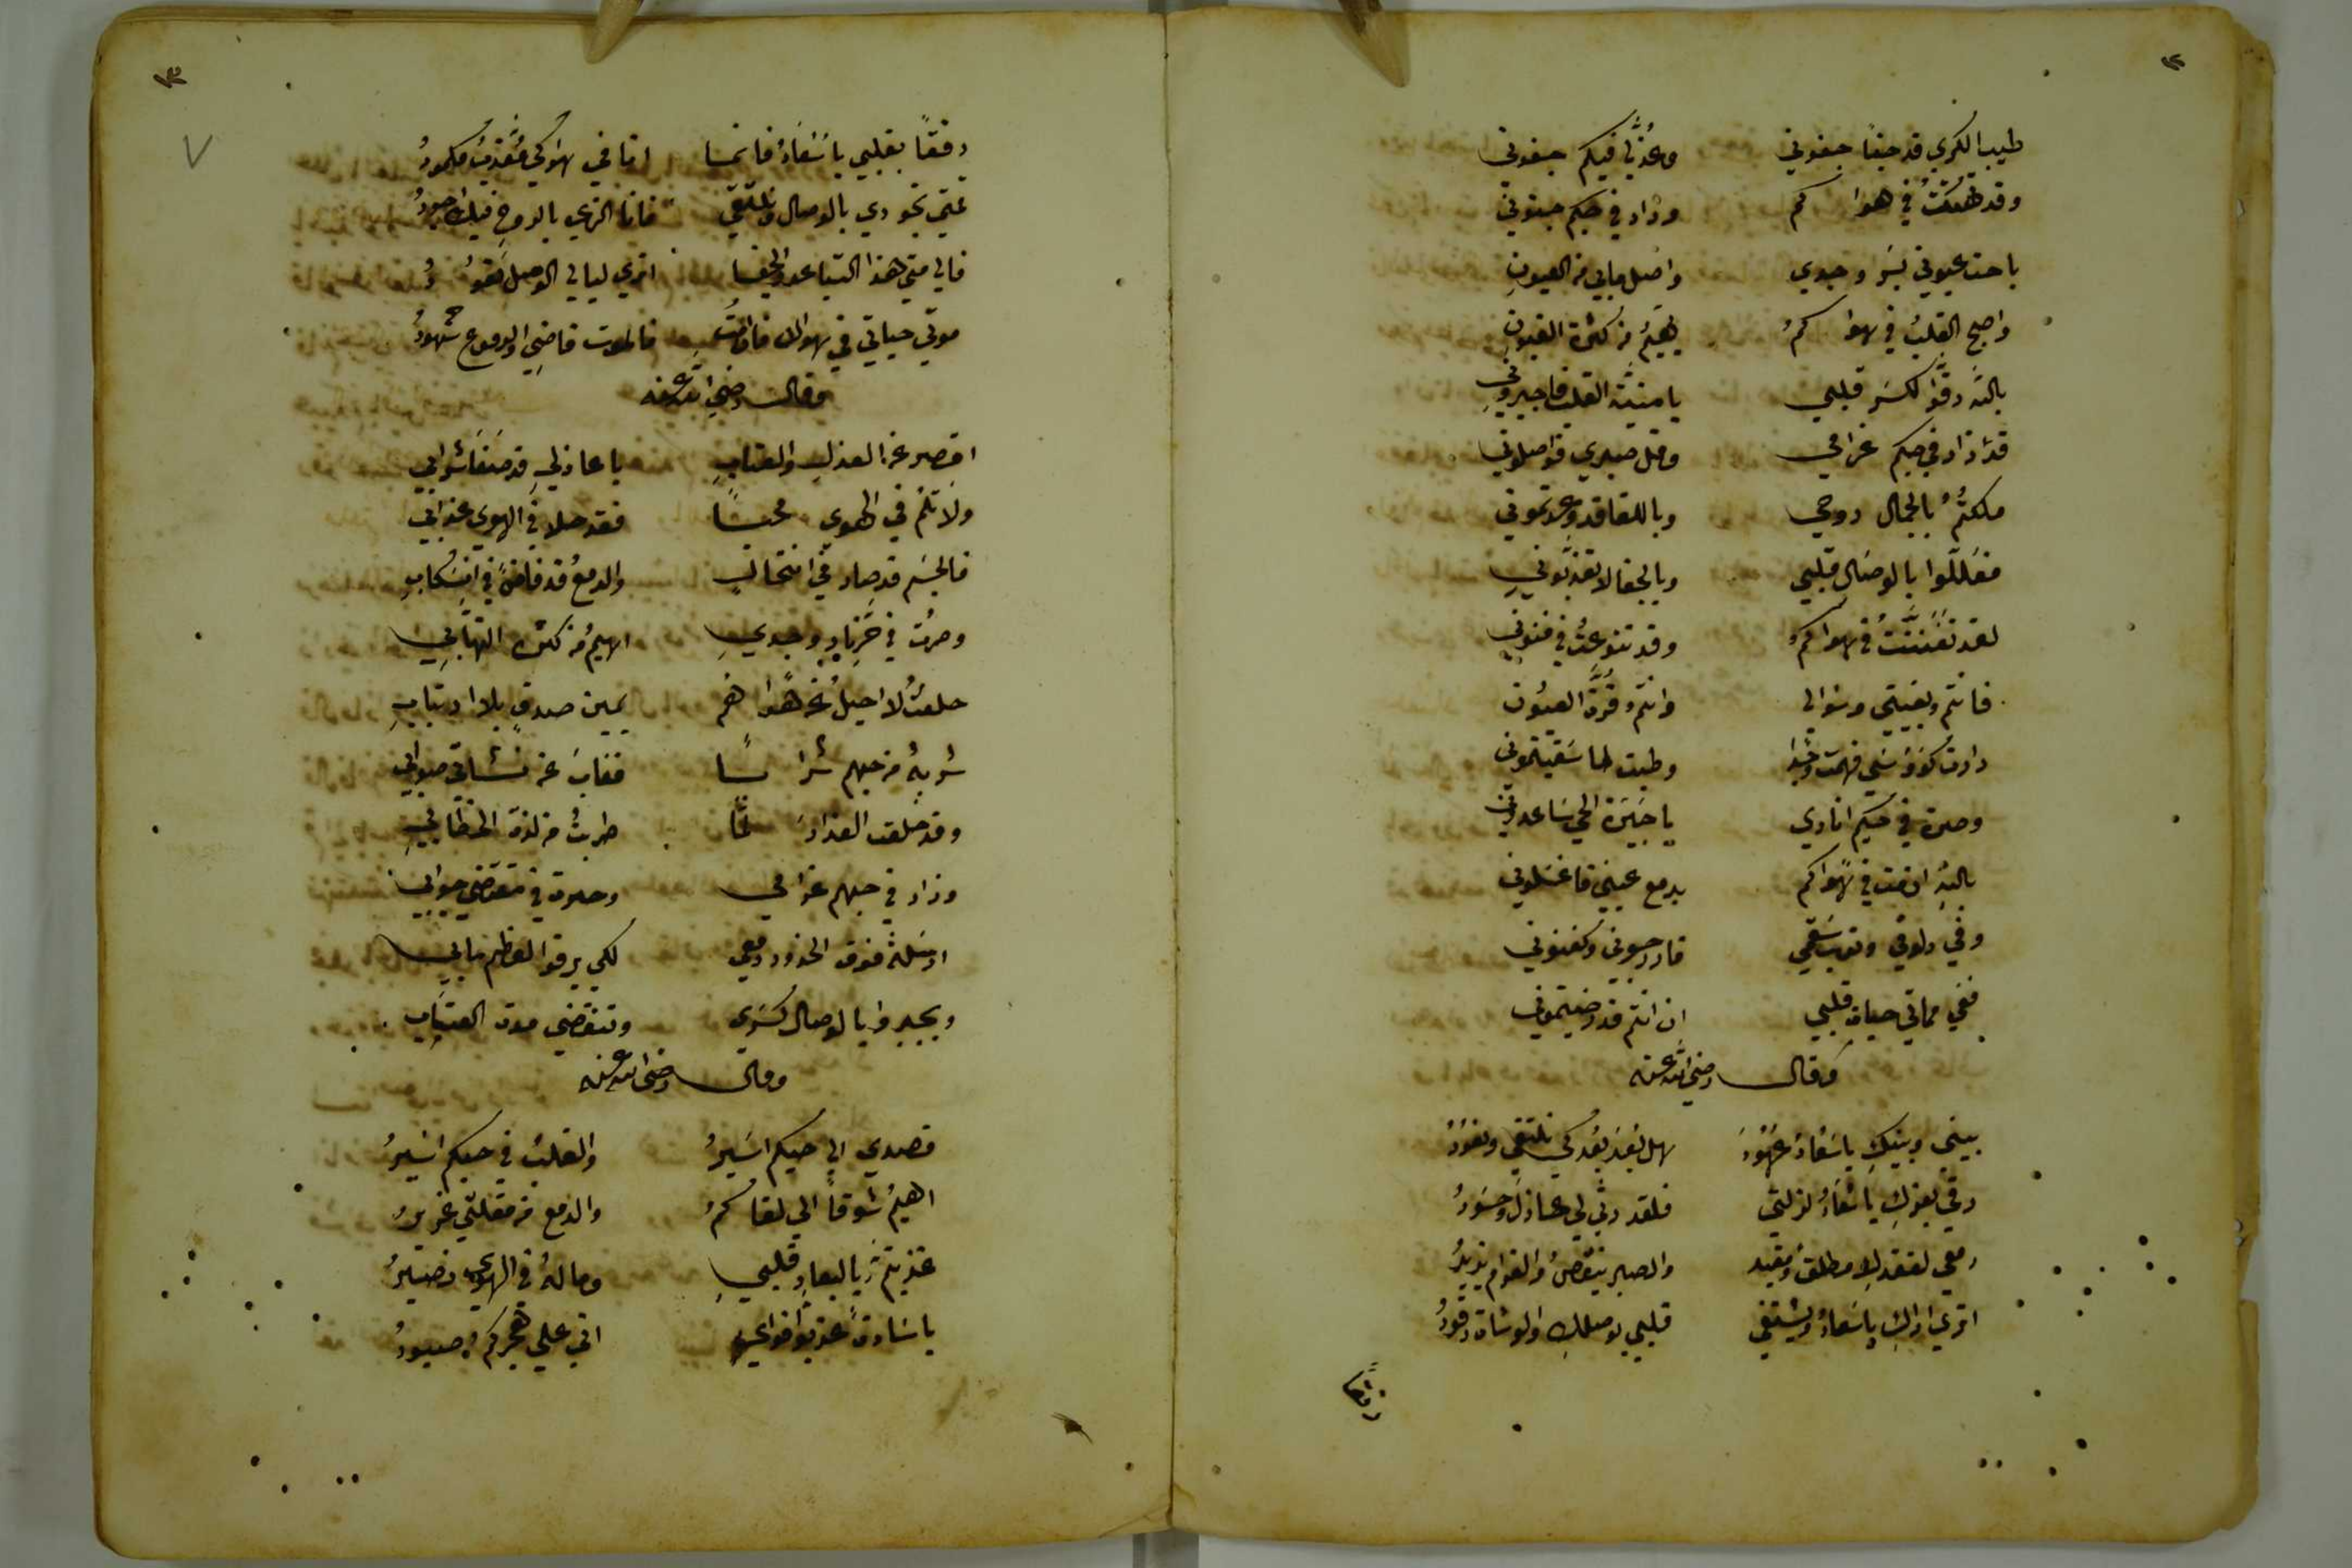 ١٢
طيب الكرى قد جفا جفوني وعذلي فيكم جفوني
وقد تهتكت في هواكم وزاد في حبكم جنوني
باحت عيوني بسر وجدي واصل مابي من العيون
واصبح القلب في هواكم يهيم من كثرة الغبون
بالله رقوا لكسر قلبي يا منية القلب فاجبروني
قد زاد في حبكم غرامي وقل صبري فواصلوني
ملكتم بالجمال روحي وباللقا قد وعدتموني
فعللوا بالوصال قلبي وبالجفا لا تعذبوني
لقد تفننت في هواكم وقد تنوعت في فنوني
فانتم بغيتي وسوالي وانتم قرة العيون
دارت كؤوسي فهمت وجدا وطبت لما سقيتموني
وصرت في حيكم انادي يا جيرة الحي ساعدوني
بالله ان مت في هواكم بدمع عيني فاغسلوني
وفي سقمي فادرجوني وكفنوني
ففي مماتي حياة قلبي ان انتم قد رضيتموني
وقال رضي الله عنه
بيني وبينك يا سعاد عهود هل بعد بعدك نلتقي ونعود
رقي بعزك يا سعاد لذلتي فلقد رثى لي عاذل وحسود
دمعي لفقدك مطلق ومقيد والصبر ينقص والغرام يزيد
اترى اراك يا سعاد ويشتفي قلبي بوصلك والوشاة رقود
رفقا
١٣
رفقا بقلبي يا سعاد فانما انا في هواكي مغرم مكمود
فمتى تجودي بالوصال ونلتقي فانا الذي بالروح فيك اجود
فالى متى هذا التباعد والجفا اترى ليالي الوصل تعود
موتي حياتي في هواك فان امت فالموت قاضي والدموع شهود
وقال رضي الله عنه
اقصر عن العذل والعتاب يا عاذلي قد صفا شرابي
ولا تلم في الهوى محبا فقد حلا في الهوى عذابي
فالجسم قد صار في انتحال والدمع قد فاض في انسكاب
وصرت في حر نار وجدي اهيم من كثرة التهابي
حلفت لا احيل عن هواهم يمين صدق بلا ارتياب
شربت من حبهم شرابا فغاب عن صوابي
وقد خلعت العذار لما طربت من لذة الخطاب
وزاد في حبهم غرامي وحرت في مقتضى جوابي
ارسلت فوق الخدود دمعي لكي يرقوا لعظم مابي
ويجبروا بالوصال كسري وتنقضي مدة العتاب
وقال رضي الله عنه
قصدي الى حيكم اسير والقلب في حبكم اسير
اهيم شوقا الى لقاكم والدمع من مقلتي غزير
عذبتم بالبعاد قلبي وماله في الهوى نصير
يا سادة عذبوا فوادي اني على هجركم صبور